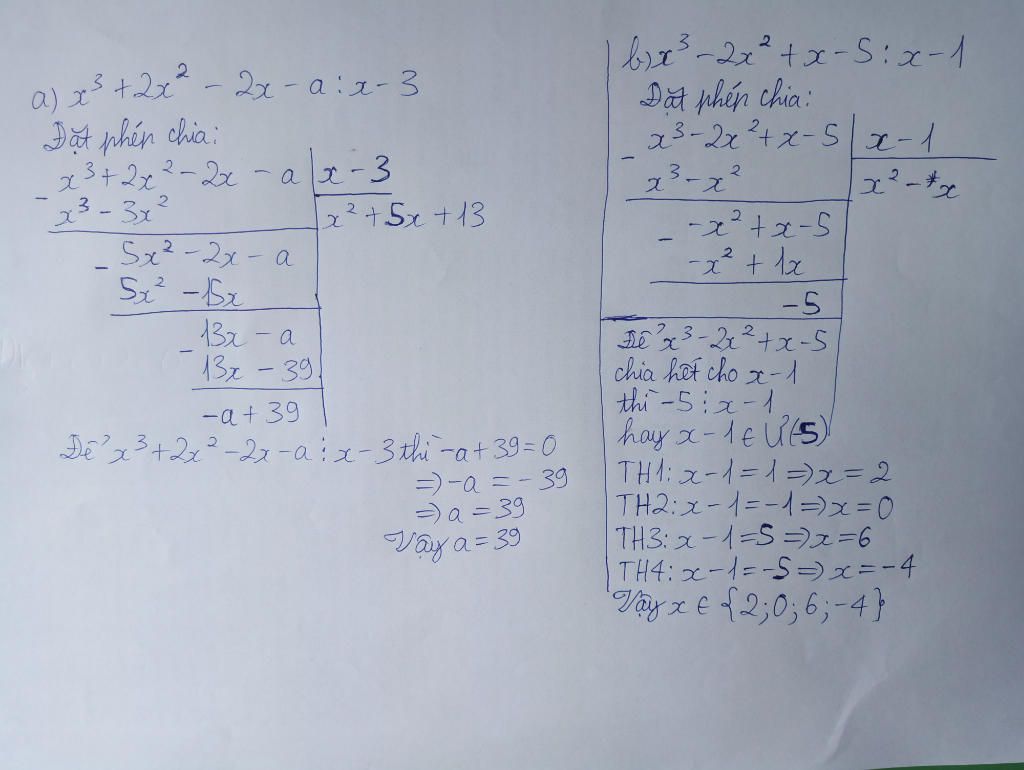 a) x³ + 2x² - 2x - a : x - 3
Đặt phép chia:
x³ + 2x² - 2x - a | x - 3
- x³ - 3x² | x² + 5x + 13
5x² - 2x - a
- 5x² - 15x
13x - a
- 13x - 39
-a + 39
Để x³ + 2x² - 2x - a ⋮ x - 3 thì -a + 39 = 0
=> -a = - 39
=> a = 39
Vậy a = 39
b) x³ - 2x² + x - 5 : x - 1
Đặt phép chia:
x³ - 2x² + x - 5 | x - 1
- x³ - x² | x² - x
-x² + x - 5
- -x² + 1x
-5
Để x³ - 2x² + x - 5
chia hết cho x - 1
thì -5 ⋮ x - 1
hay x - 1 ∈ Ư(5)
TH1: x - 1 = 1 => x = 2
TH2: x - 1 = -1 => x = 0
TH3: x - 1 = 5 => x = 6
TH4: x - 1 = -5 => x = -4
Vậy x ∈ {2; 0; 6; -4}